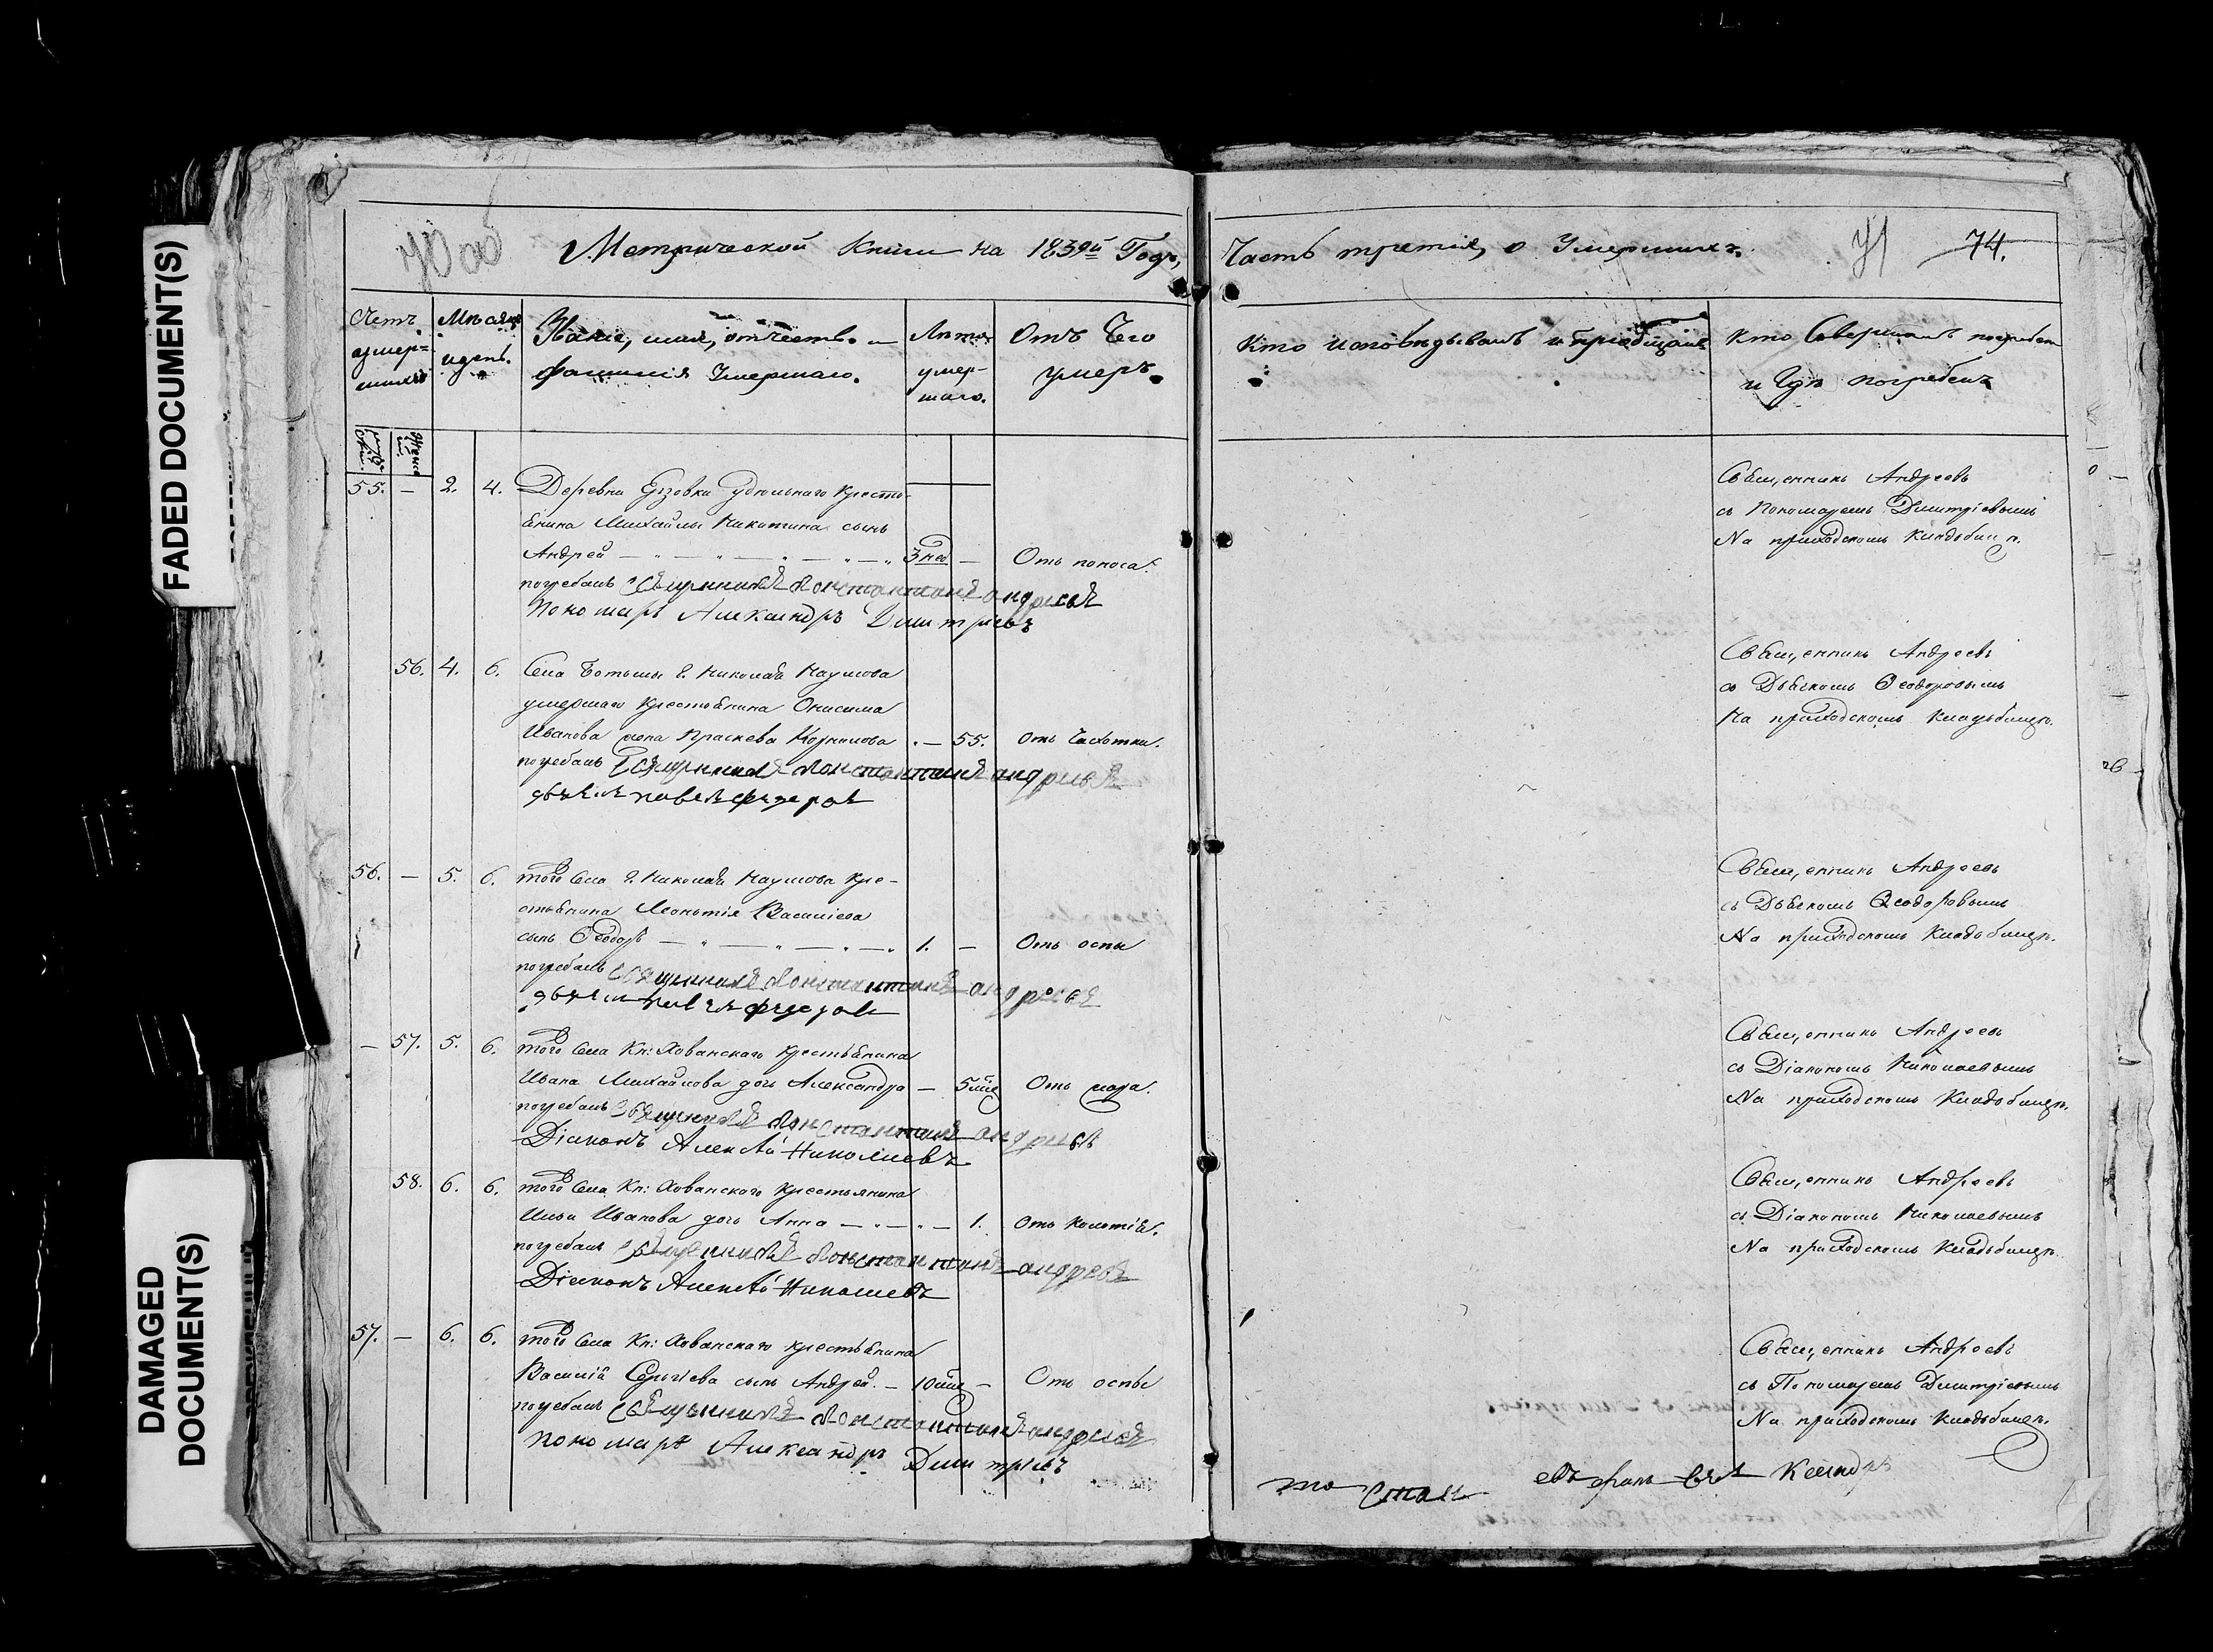 FADED DOCUMENT(S)
DAMAGED DOCUMENT(S)
70 об
Метрической Книги на 1839й Годъ,
Счетъ умер-шихъ
Мѣсяцъ и день.
Званіе, имя, отчество и фамилія Умершаго.
Лѣта умер-шаго.
Отъ Чего умеръ.
55. — 2. 4. Деревни Ерзовки Удѣльнаго Кресть-
янина Михайлы Никитина сынъ
Андрей — 3 нед. — Отъ поноса.
погребалъ Священникъ Константинъ Андреевъ
Пономарь Александръ Димитріевъ
56. 4. 6. Села Ботьмы Г. Николая Наумова
умершаго Крестьянина Онисима
Иванова жена Праскева Корнилова — 55. Отъ Чахотки.
погребалъ Священникъ Константинъ Андреевъ
дьячекъ Павелъ Федоровъ
56. — 5. 6. того Села Г. Николая Наумова Кре-
стьянина Леонтія Васильева
сынъ Ѳеодоръ — 1. — Отъ оспы
погребалъ Священникъ Константинъ Андреевъ
дьячекъ Павелъ Федоровъ
— 57. 5. 6. того Села Кн: Хованскаго Крестьянина
Ивана Михайлова дочь Александра — 5 мѣс Отъ жара.
погребалъ Священникъ Константинъ Андреевъ
Діаконъ Алексѣй Николаевъ
58. 6. 6. того Села Кн: Хованскаго Крестьянина
Ильи Иванова дочь Анна — 1. Отъ Колотія.
погребалъ Священникъ Константинъ Андреевъ
Діаконъ Алексѣй Николаевъ
57. — 6. 6. того Села Кн: Хованскаго крестьянина
Василія Сергіева сынъ Андрей. — 10 мѣс — Отъ оспы
погребалъ Священникъ Константинъ Андреевъ
Пономарь Александръ Димитріевъ
Часть третія, о Умершихъ.
71
74.
Кто исповѣдывалъ и пріобщалъ
Кто Совершалъ погребен и Гдѣ погребенъ
Священникъ Андреевъ
съ Пономаремъ Димитріевымъ
На приходскомъ Кладбищѣ.
Священникъ Андреевъ
съ Дьячкомъ Ѳеодоровымъ
На приходскомъ Кладьбищѣ.
Священникъ Андреевъ
съ Дьячкомъ Ѳеодоровымъ
На приходскомъ Кладьбищѣ.
Священникъ Андреевъ
съ Діакономъ Николаевымъ
На приходскомъ Кладьбищѣ.
Священникъ Андреевъ
съ Діакономъ Николаевымъ
На приходскомъ Кладьбищѣ.
Священникъ Андреевъ
съ Пономаремъ Димитріевымъ
На приходскомъ Кладьбищѣ.